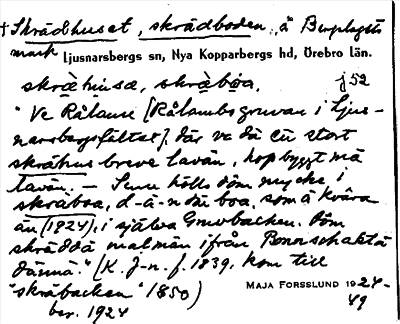 † Skrädhuset, skrädboden, å Bergslagets
mark Ljusnarsbergs sn, Nya Kopparbergs hd, Örebro län.
skrähusä, skräboa. j 52
"Ve Rålame [Rålambsgruvan i Ljus-
narsbergsfältet], där va dä ett stort
skrähus breve lavän, hopbyggt mä
lavän. – Senn hölls döm mycke i
skräboa, d-ä-n där boa, som ä kvära
än (1924), i själva Gruvbacken. Döm
skrädda malmän ifrån Bonnschaktä
dännä." (K. J-n. f. 1839, kom till
"skräbacken" 1850)
ber. 1924
MAJA FORSSLUND 1924-
49